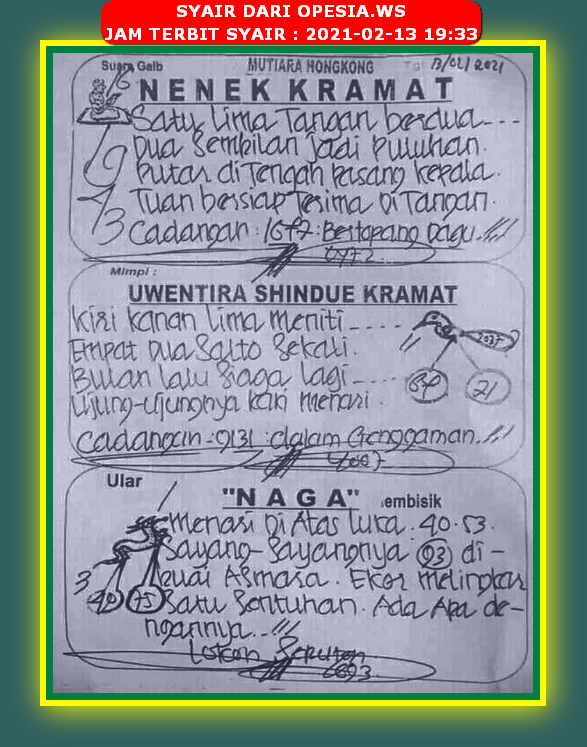 SYAIR DARI OPESIA.WS
JAM TERBIT SYAIR : 2021-02-13 19:33
Suara Gaib
MUTIARA HONGKONG
13/02/2021
NENEK KRAMAT
Satu Lima Tangan berdua...
Dua Sembilan Jadi Puluhan.
Putar diTengah Pasang Kepala.
Tuan bersiap Terima DiTangan.
Cadangan : : Bertopang Dagu.
Mimpi :
UWENTIRA SHINDUE KRAMAT
Kiri Kanan Lima Meniti ....
Empat Dua Salto Sekali.
Bulan Lalu Siaga Lagi ....
Ujung-Ujungnya Kan Menari.
Cadangan : 9131 : dalam Genggaman.
21
Ular
"NAGA"
embisik
Menari Di Atas Luka. 40.53.
Sayang-Sayangnya 93 di-
buai Asmara. Ekor Melingkar
Satu Sentuhan. Ada Apa de-
ngannya..